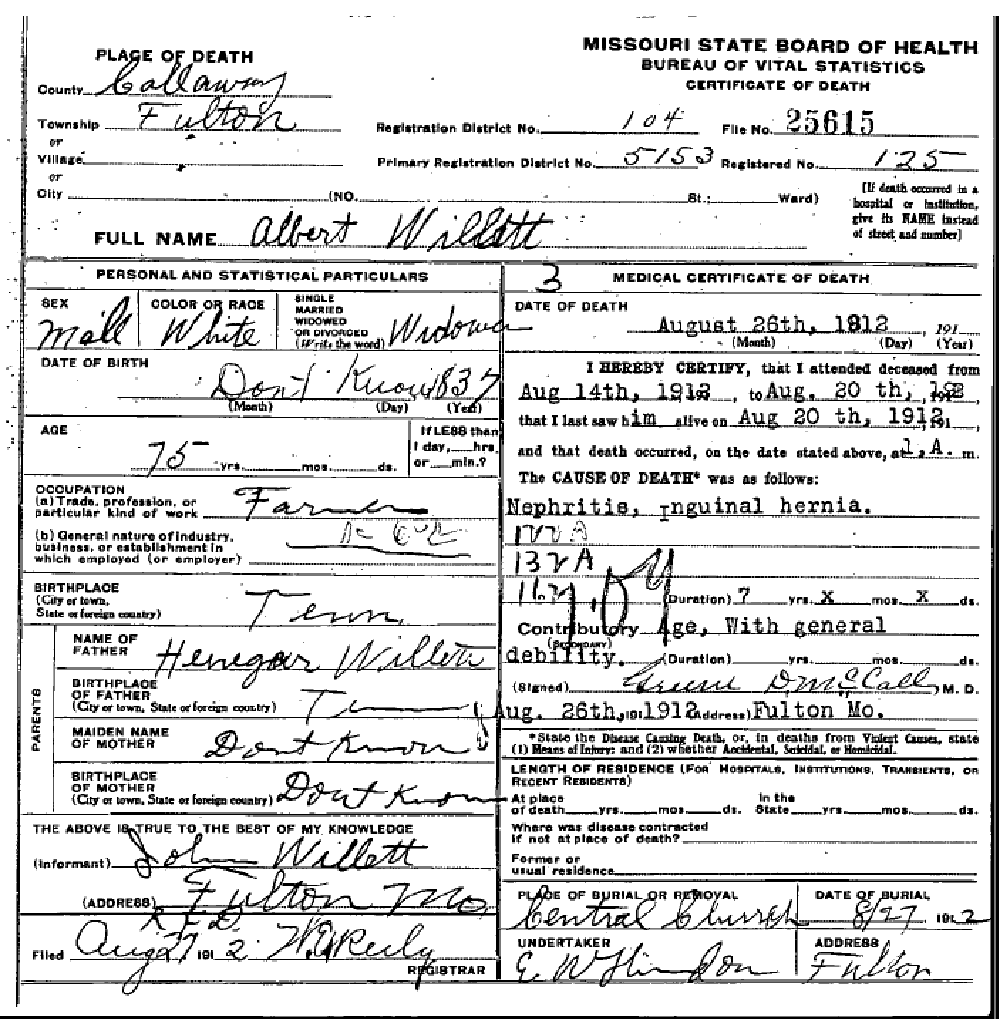 MISSOURI STATE BOARD OF HEALTH
BUREAU OF VITAL STATISTICS
CERTIFICATE OF DEATH
PLACE OF DEATH
County Callaway
Township Fulton
or
Village
or
City (NO. St.; Ward)
Registration District No. 104 File No. 25615
Primary Registration District No. 5153 Registered No. 125
[If death occurred in a
hospital or institution,
give its NAME instead
of street and number]
FULL NAME Albert Willett
PERSONAL AND STATISTICAL PARTICULARS
SEX
Mall
COLOR OR RACE
White
SINGLE
MARRIED
WIDOWED
OR DIVORCED
(Write the word)
Widower
DATE OF BIRTH
Don't Know 1837
(Month) (Day) (Year)
AGE
75 yrs. mos. ds.
If LESS than
1 day, hrs.
or min.?
OCCUPATION
(a) Trade, profession, or
particular kind of work Farmer
(b) General nature of industry,
business, or establishment in
which employed (or employer)
BIRTHPLACE
(City or town,
State or foreign country)
Tenn.
PARENTS
NAME OF
FATHER
Henegar Willett
BIRTHPLACE
OF FATHER
(City or town, State or foreign country)
Tenn
MAIDEN NAME
OF MOTHER
Dont Know
BIRTHPLACE
OF MOTHER
(City or town, State or foreign country)
Dont Know
THE ABOVE IS TRUE TO THE BEST OF MY KNOWLEDGE
(Informant) John Willett
(ADDRESS) Fulton Mo
R.F.D.
Filed Aug 27 1912
REGISTRAR
3
MEDICAL CERTIFICATE OF DEATH
DATE OF DEATH
August 26th, 1912, 191
(Month) (Day) (Year)
I HEREBY CERTIFY, that I attended deceased from
Aug 14th, 1912, to Aug. 20 th, 1912
that I last saw him alive on Aug 20 th, 1912, 191
and that death occurred, on the date stated above, at 1.A. m.
The CAUSE OF DEATH* was as follows:
Nephritis, Inguinal hernia.
132A
(Duration) 7 yrs. X mos. X ds.
Contributory Age, With general
(SECONDARY)
debility. (Duration) yrs. mos. ds.
(Signed) D McCall, M. D.
Aug. 26th, 191 1912 (Address) Fulton Mo.
*State the Disease Causing Death, or, in deaths from Violent Causes, state
(1) Means of Injury; and (2) whether Accidental, Suicidal, or Homicidal.
LENGTH OF RESIDENCE (FOR HOSPITALS, INSTITUTIONS, TRANSIENTS, OR
RECENT RESIDENTS)
At place
of death yrs. mos. ds.
In the
State yrs. mos. ds.
Where was disease contracted
if not at place of death?
Former or
usual residence
PLACE OF BURIAL OR REMOVAL
Central Church
DATE OF BURIAL
8/27 1912
UNDERTAKER
E W
ADDRESS
Fulton